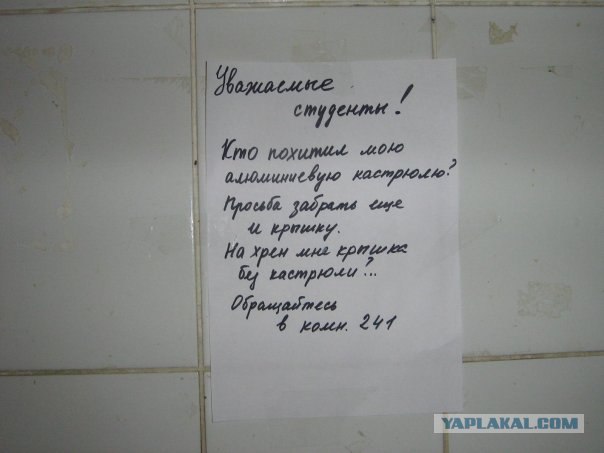 Уважаемые
студенты!
Кто похитил мою
алюминиевую кастрюлю?
Просьба забрать еще
и крышку.
На хрен мне крышка
без кастрюли?...
Обращайтесь
в комн. 241
YAPLAKAL.COM